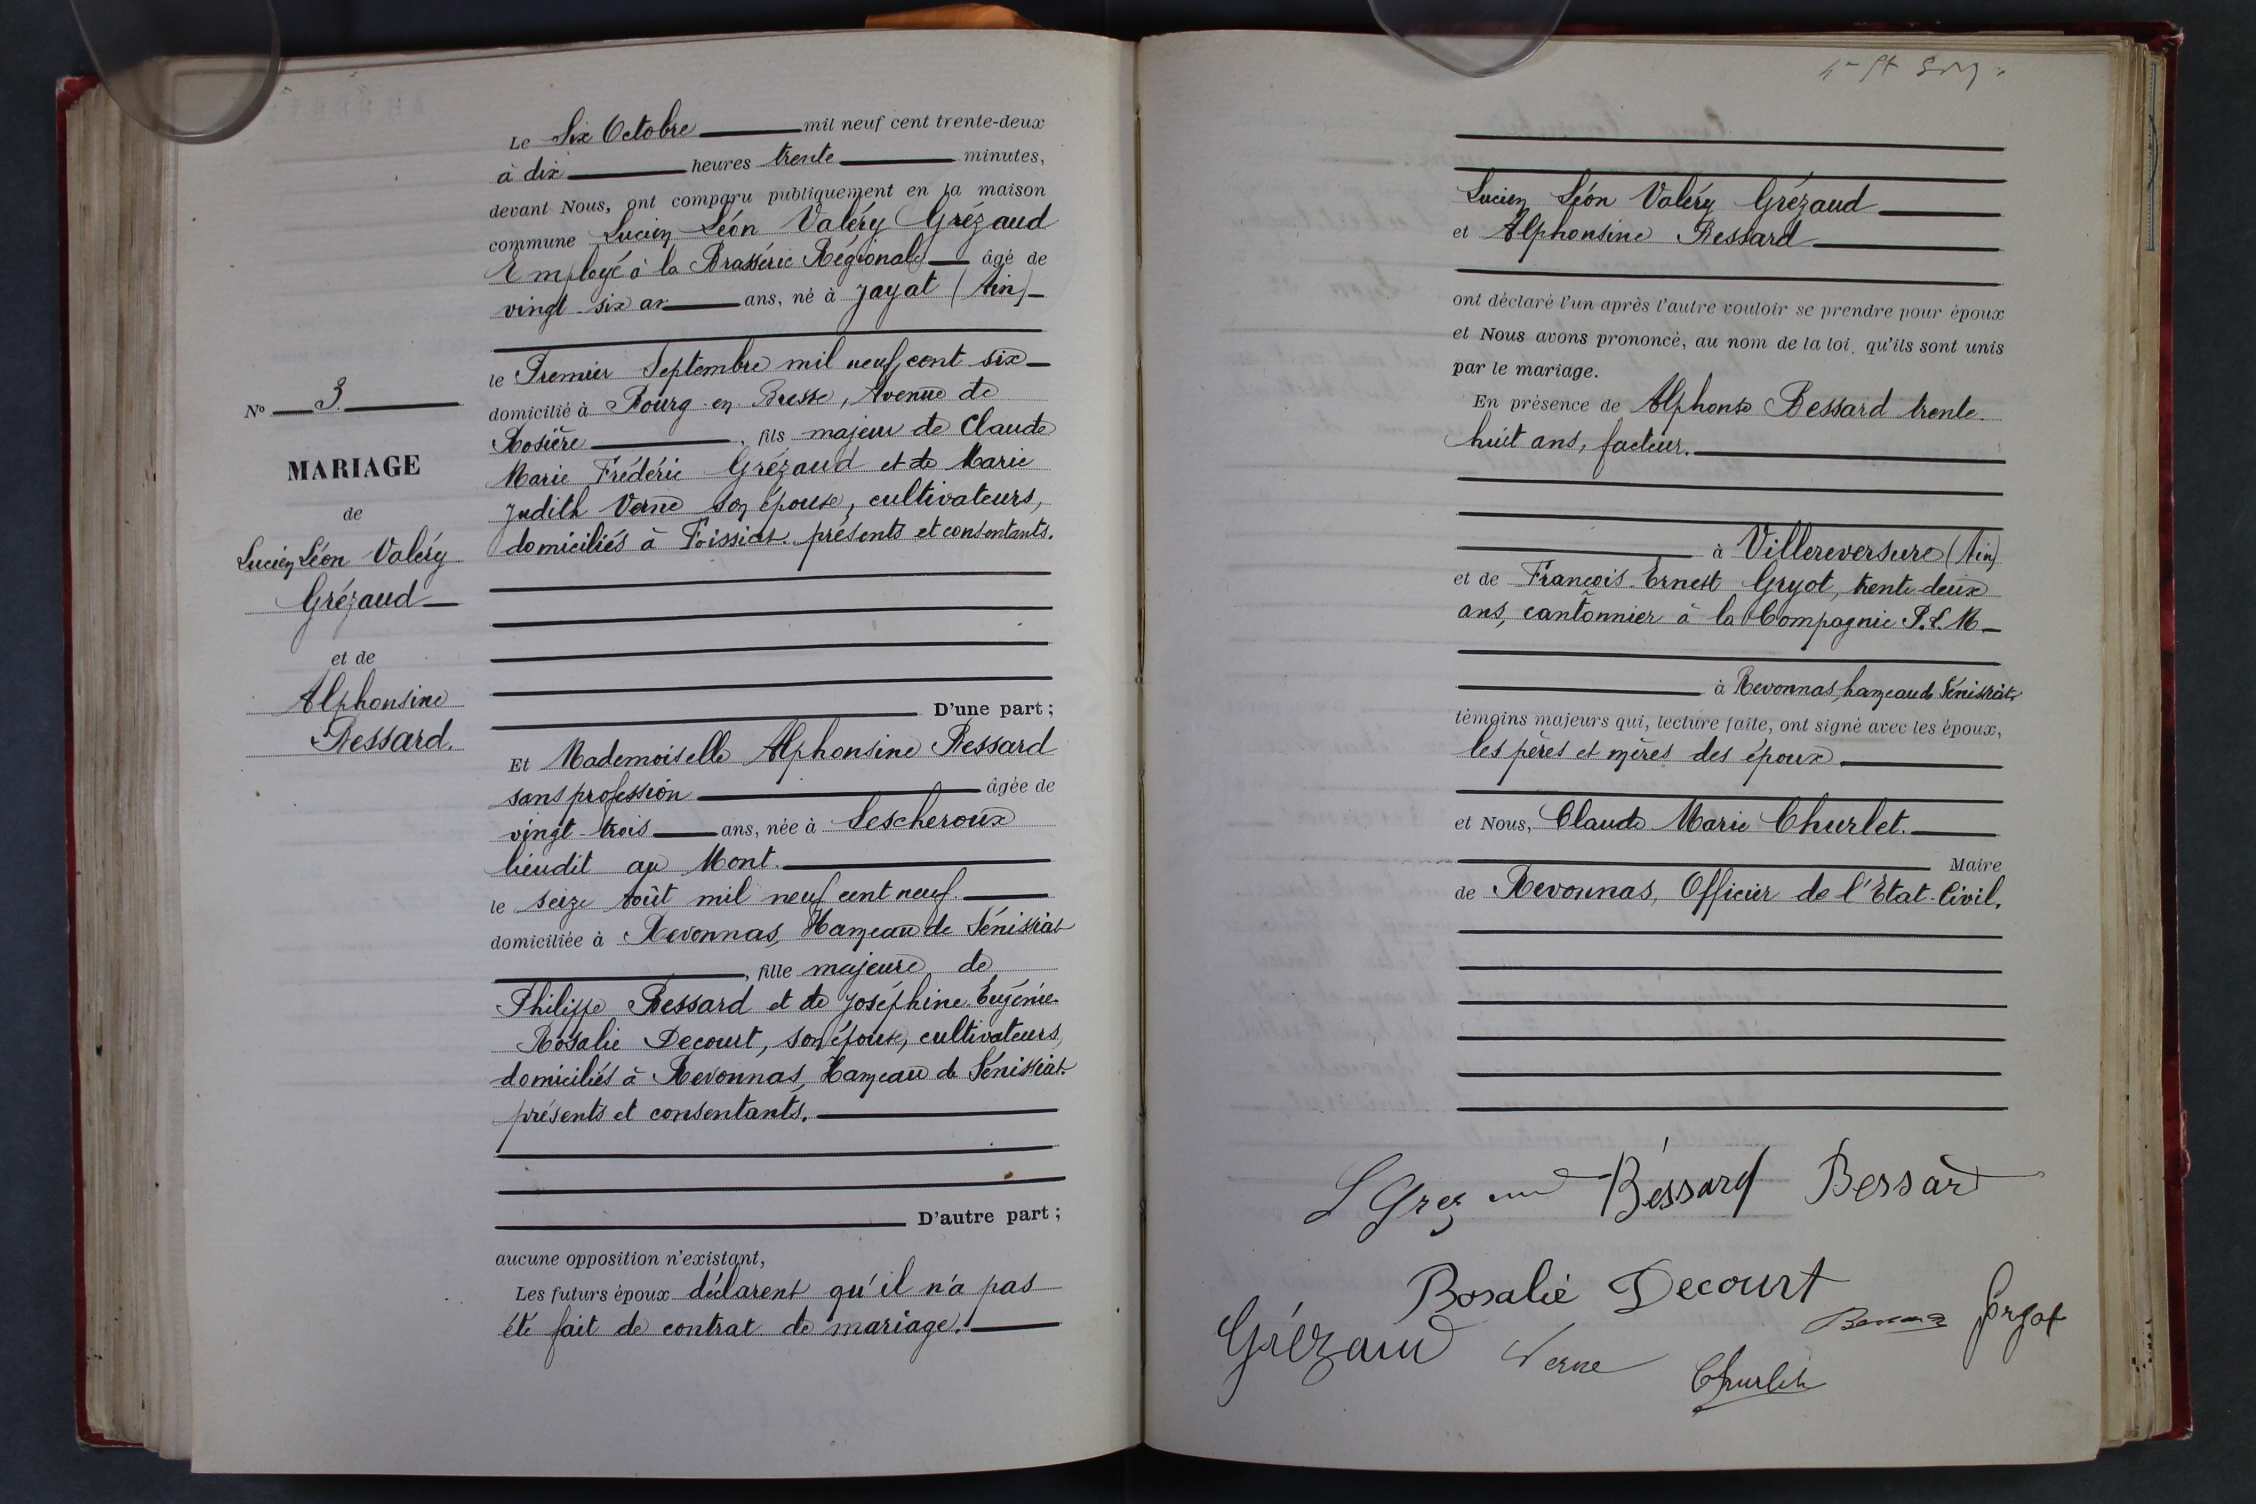 Le Six Octobre mil neuf cent trente-deux
à dix heures trente minutes,
devant Nous, ont comparu publiquement en la maison
commune Lucien Léon Valéry Grézaud
Employé à la Brasserie Régionale âgé de
vingt-six ans, né à Jayat (Ain)
le Premier Septembre mil neuf cent six
domicilié à Bourg-en-Bresse, Avenue de
Rosière, fils majeur de Claude
Marie Frédéric Grézaud et de Marie
Judith Verne son épouse, cultivateurs,
domiciliés à Foissiat présents et consentants.
D'une part;
Et Mademoiselle Alphonsine Bessard
sans profession âgée de
vingt-trois ans, née à Lescheroux
lieudit au Mont.
le seize Août mil neuf cent neuf.
domiciliée à Revonnas, Hameau de Sénissiat
, fille majeure de
Philippe Bessard et de Joséphine Eugénie
Rosalie Decourt, son épouse, cultivateurs,
domiciliés à Revonnas, Hameau de Sénissiat.
présents et consentants.
D'autre part;
aucune opposition n'existant,
Les futurs époux déclarent qu'il n'a pas
été fait de contrat de mariage.
N° 3.
MARIAGE
de
Lucien Léon Valéry
Grézaud
et de
Alphonsine
Bessard.
Lucien Léon Valéry Grézaud
et Alphonsine Bessard
ont déclaré l'un après l'autre vouloir se prendre pour époux
et Nous avons prononcé, au nom de la loi, qu'ils sont unis
par le mariage.
En présence de Alphonse Bessard trente-
huit ans, facteur.
à Villereversure (Ain)
et de François-Ernest Gryot, trente-deux
ans, cantonnier à la Compagnie P.L.M
à Revonnas, hameau de Sénissiat
témoins majeurs qui, lecture faite, ont signé avec les époux,
les pères et mères des époux
et Nous, Claude Marie Churlet.
Maire
de Revonnas, Officier de l'Etat-Civil.
L Grezaud Bessard Bessard
Rosalie Decourt
Grézaud Verne Churlet